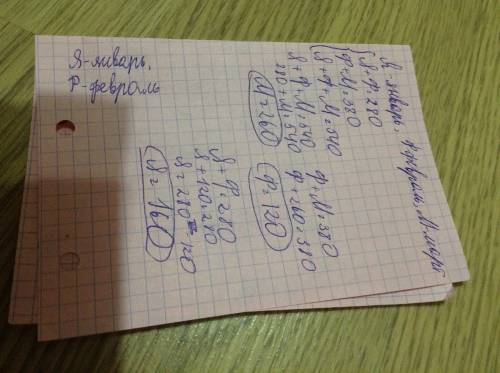 Я-январь, Ф-февраль, М-март
Я+Ф=280
Ф+М=380
Я+Ф+М=540
Я+Ф+М=540
280+М=540
М=260
Ф+М=380
Ф+260=380
Ф=120
Я+Ф=280
Я+120=280
Я=280-120
Я=160
Я-январь.
Ф-февраль